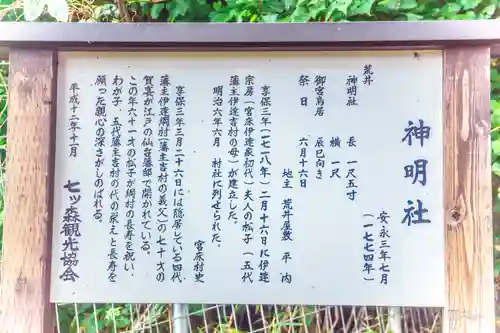 神明社
安永三年七月
（一七七四年）
荒井
神明社　長　一尺五寸
横　一尺
御宮鳥居　辰巳向き
祭日　六月十六日
地主　荒井屋敷　平内
享保三年（一七一八年）二月十六日に伊達
宗房（宮床伊達家初代）夫人の松子（五代
藩主伊達吉村の母）が建立した。
明治六年六月　村社に列せられた。
宮床村史
享保三年三月二十六日には隠居している四代
藩主伊達綱村（藩主吉村の義父）の七十才の
賀宴が江戸の仙台藩邸で開かれている。
この年六十一才の松子が綱村の長寿を祝い、
わが子、五代藩主吉村の代の栄えと長寿を
願った親心の深さがしのばれる。
平成十二年十一月
七ッ森観光協会